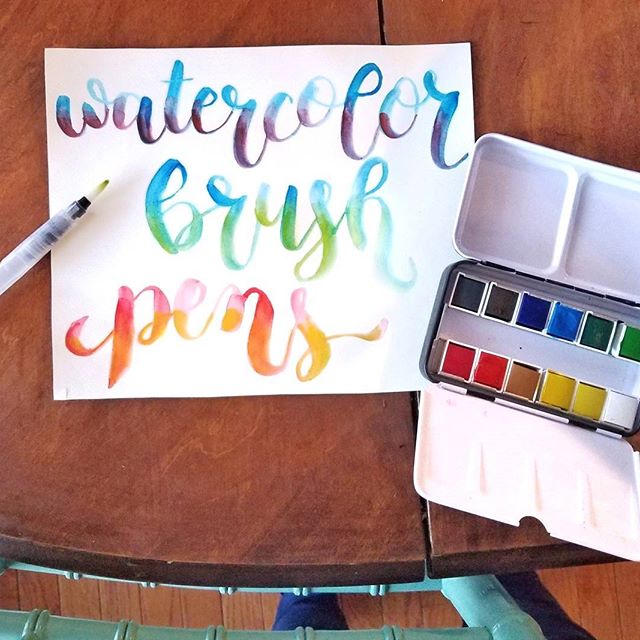 watercolor
brush
pens